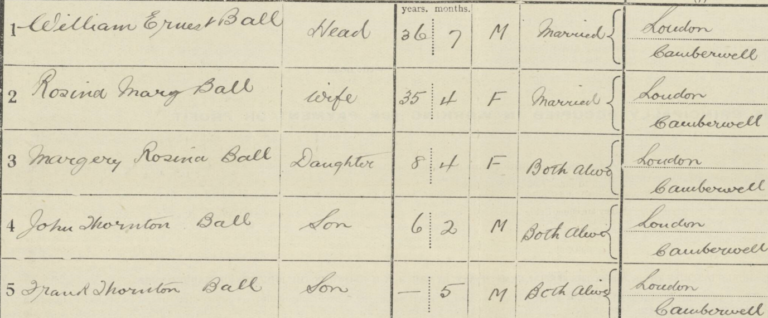 years. months.
1 William Ernest Ball Head 36 7 M Married London
Camberwell
2 Rosina Mary Ball Wife 35 4 F Married London
Camberwell
3 Margery Rosina Ball Daughter 8 4 F Both Alive London
Camberwell
4 John Thornton Ball Son 6 2 M Both Alive London
Camberwell
5 Frank Thornton Ball Son — 5 M Both Alive London
Camberwell